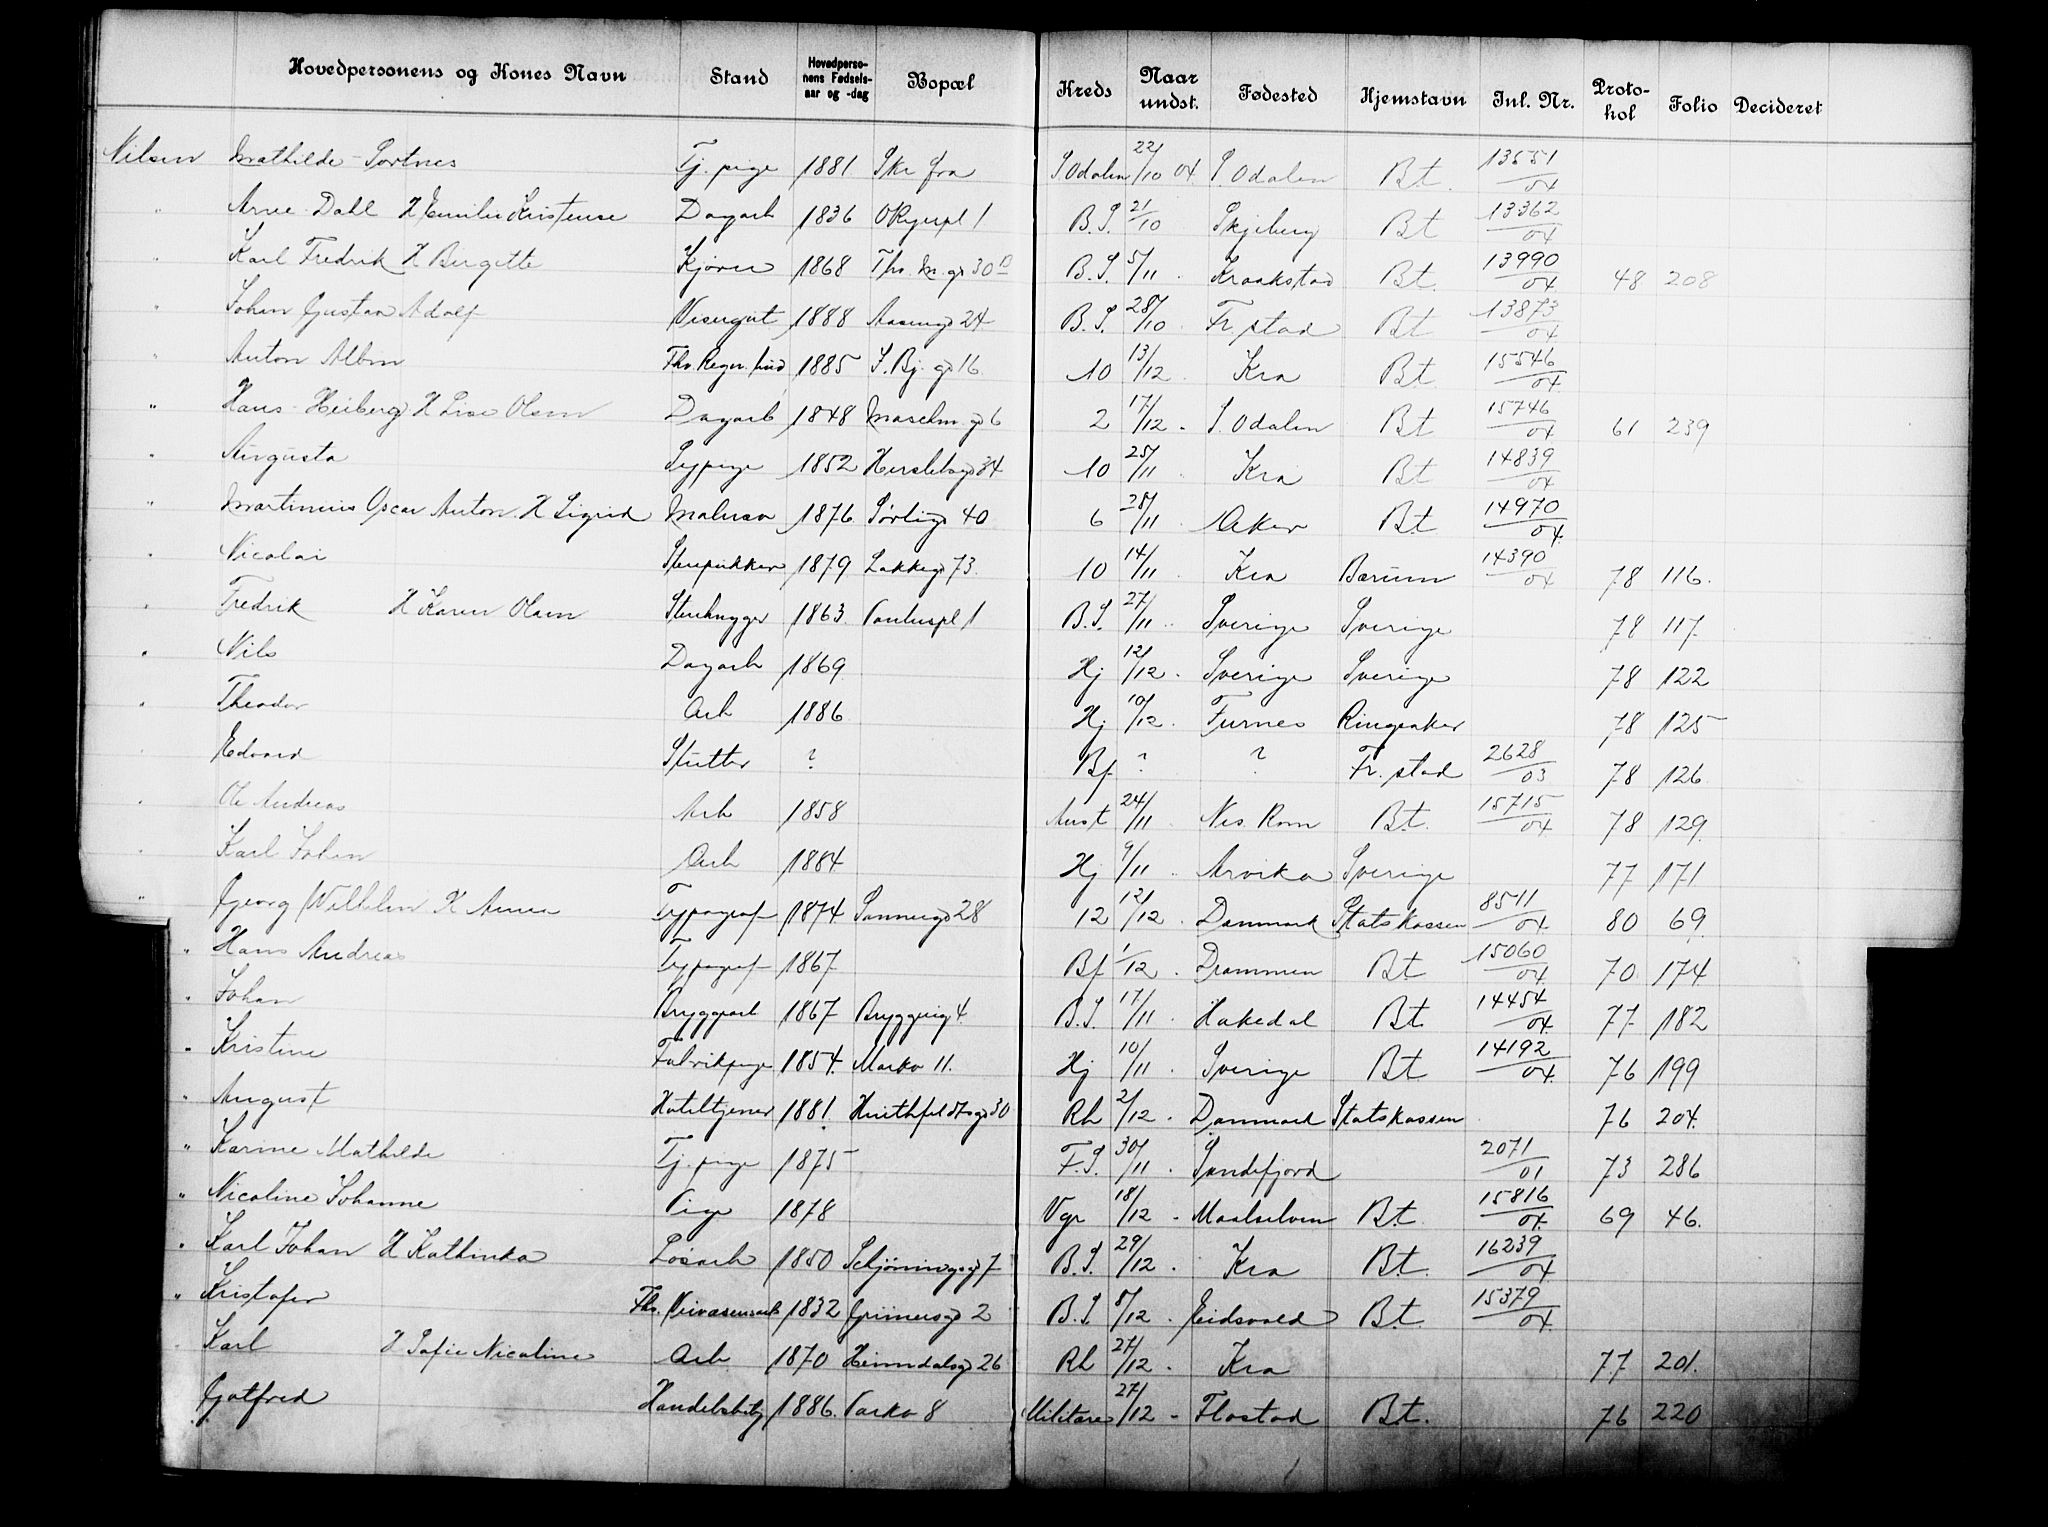 Hovedpersonens og Kones Navn Stand Hovedpersonens Fødselsaar og -dag Bopæl Kreds Naar undst. Fødested Hjemstavn Inl. Nr. Protokol Folio Decideret
Nilsen Mathilde Sortnes Tj. pige 1881 Ske fra S Odalen 22/10 04 S. Odalen Bt. 13551/04
" Arne Dahl H Emilie Kristense Dagarb 1836 O Ryespl 1 B.S. 21/10 Skjeberg Bt 13362/04
" Karl Fredrik H Birgitte Kjører 1868 Ths. M. gd 30 B.S. 5/11 Kraakstad Bt. 13990/04 48 208
" Johan Gustav Adolf Visergut 1888 Aasengd 24 B.S. 28/10 Fr. stad Bt 13873/04
" Anton Albin Ths. 1885 S. Bj. gd 16 10 13/12 Kra Bt 15546/04
" Hans Heiberg H Lise Olsen Dagarb 1848 Maselm. gd 6 2 17/12 - S. Odalen Bt 15746/04 61 239
" Augusta Sypige 1852 Herslebsgd 34 10 25/11 Kra Bt 14839/04
" Martinius Oscar Anton H Sigrid Malersv 1876 Sørligd 40 6 28/11 Aker Bt 14970/04
" Nicolai Stenpukker 1879 Lakkegd 73. 10 14/11 Kra Bærum 14390/04 78 116.
" Fredrik H Karen Olsen Stenhugger 1863 Pauluspl 1 B.S. 27/11 Sverige Sverige 78 117
" Nils Dagarb 1869 Hj 12/12 - Sverige Sverige 78 122
" Theodor Arb 1886 Hj 10/12 - Furnes Ringsaker 78 125
" Edvard Slutter ? Bf ? ? Fr. stad 2628/03 78 126
" Ole Andreas Arb 1858 Anst 24/11 Nes Rom Bt. 15715/04 78 129
" Karl Johan Arb 1884 Hj 9/11 Arvika Sverige 77 171
" Georg Wilhelm H Anna Typograf 1874 Sannergd 28 12 12/12 - Danmark Statskassen 8511/04 80 69
" Hans Andreas Typograf 1867 Bf 1/12 - Drammen Bt 15060/04 70 174
" Johan Bryggearb 1867 Bryggerigd 4 B.S. 17/11 Hakedal Bt. 14454/04 77 182
" Kristine Fabrikpige 1854 Markv 11. Hj 10/11 Sverige Bt 14192/04 76 199
" August Hoteltjener 1881 Huithfeldtsgd 30 Rh 2/12 - Danmark Statskassen 76 204
" Karine Mathilde Tj. pige 1875 F.S. 30/11 Sandefjord 2071/01 73 286
" Nicoline Johanne Pige 1878 Vgr 18/12 - Maalselven Bt. 15816/04 69 46.
" Karl Johan H Kathinka Løsarb 1850 Schjøningsgd 7 B.S. 29/12 - Kra Bt. 16239/04
" Kristofer Ths. Veivæsensarb 1832 Grünersgd 2 B.S. 8/12 - Eidsvold Bt. 15379/04
" Karl H Sofie Nicoline Arb 1870 Heimdalsgd 26 Rh 27/12 - Kra 77 201.
" Gotfred Handelsbetj 1886. Parkv 8 Militære 27/12 - Flostad Bt. 76 220